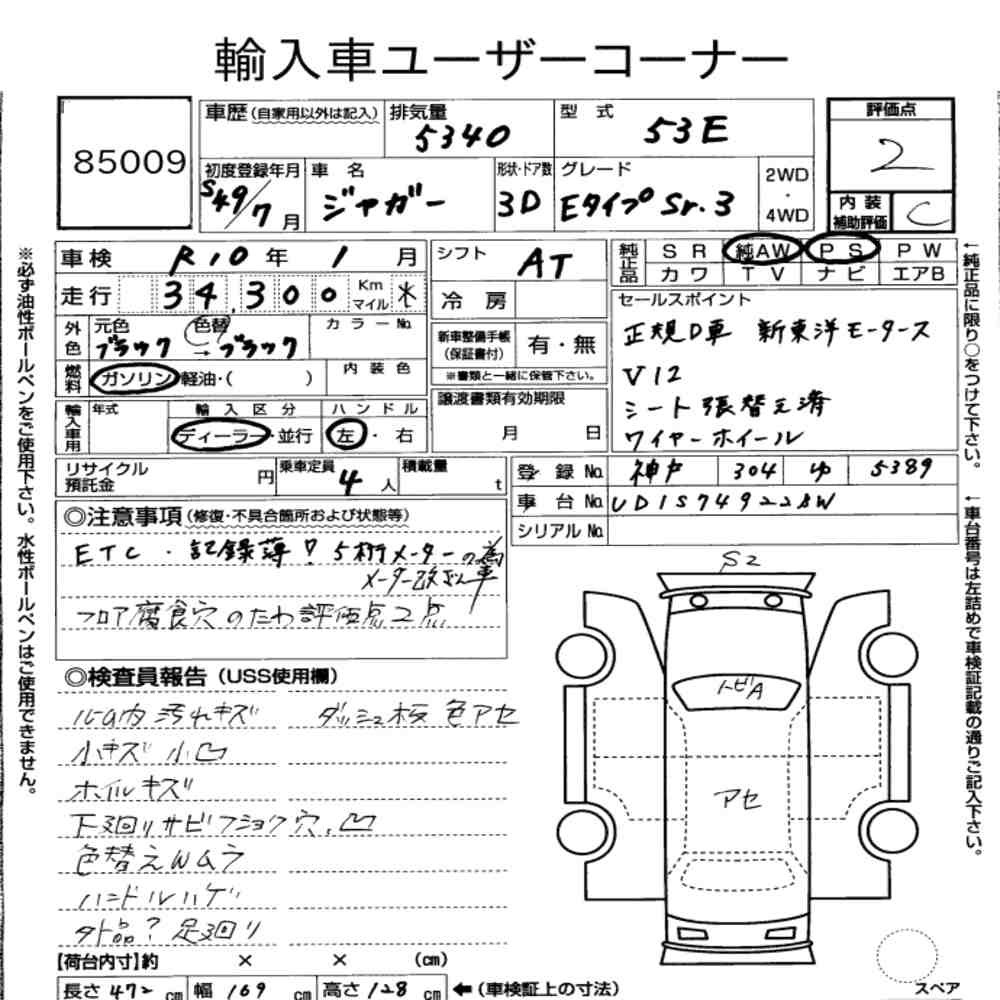 輸入車ユーザーコーナー
85009
車歴(自家用以外は記入) 排気量 5340 型式 53E
評価点 2
初度登録年月 S49/7月 車名 ジャガー 形状・ドア数 3D グレード Eタイプ Sr.3 2WD・4WD
内装補助評価 C
車検 R10年 1月 シフト AT 純正品 SR 純AW PS PW
カワ TV ナビ エアB
走行 34,300 Km マイル 冷房
セールスポイント
外色 元色 ブラック 色替 →ブラック カラーNo. 新車整備手帳(保証書付) 有・無
※書類と一緒に保管下さい。
正規D車 新東洋モータース
燃料 ガソリン 軽油・( ) 内装色
V12
譲渡書類有効期限
月 日
シート張替え済
輸入車用 年式 輸入区分 ディーラー・並行 ハンドル 左・右
ワイヤーホイール
リサイクル預託金 円 乗車定員 4人 積載量 t
登録No. 神戸 304 ゆ 5389
車台No. UD1S74922BW
シリアルNo.
◎注意事項(修復・不具合箇所および状態等)
ETC・記録簿? 5桁メーターの為
メーター改ざん車
フロア腐食穴のため評価点2点
◎検査員報告(USS使用欄)
ルーム内汚れキズ ダッシュ板色アセ
小キズ 小凹
ホイルキズ
下廻りサビフショク穴、凹
色替えWムラ
ハンドルハゲ
外品? 足廻り
S2
トビA
アセ
【荷台内寸】約 × × (cm)
長さ 472cm 幅 169cm 高さ 128cm ←(車検証上の寸法)
スペア
※必ず油性ボールペンをご使用下さい。水性ボールペンはご使用できません。
←純正品に限り○をつけて下さい。
←車台番号は左詰めで車検証記載の通りご記入下さい。